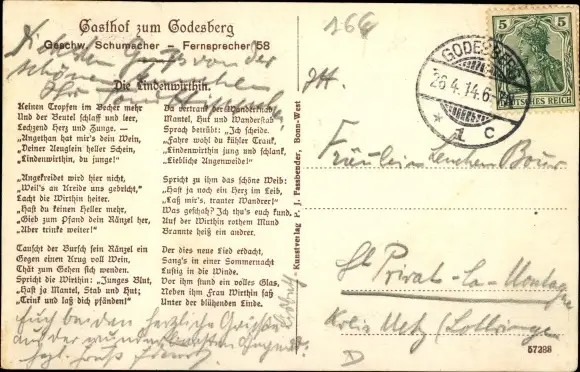 Gasthof zum Godesberg
Geschw. Schumacher – Fernsprecher 58
Die Lindenwirthin.
Keinen Tropfen im Becher mehr
Und der Beutel schlaff und leer,
Lechzend Herz und Zunge. —
„Angethan hat mir's dein Wein,
„Deiner Aeuglein heller Schein,
„Lindenwirthin, du junge!"
„Angekreidet wird hier nicht,
„Weil's an Kreide uns gebricht,"
Lacht die Wirthin heiter.
„Hast du keinen Heller mehr,
„Gieb zum Pfand dein Ränzel her,
„Aber trinke weiter!"
Tauscht der Bursch sein Ränzel ein
Gegen einen Krug voll Wein,
Thät zum Gehen sich wenden.
Spricht die Wirthin: „Junges Blut,
„Hast ja Mantel, Stab und Hut;
„Trink und laß dich pfänden!"
Da vertrank der Wanderknab
Mantel, Hut und Wanderstab
Sprach betrübt: „Ich scheide.
„Fahre wohl du kühler Trank,
„Lindenwirthin jung und schlank,
„Liebliche Augenweide!"
Spricht zu ihm das schöne Weib:
„Hast ja noch ein Herz im Leib,
„Laß mir's, trauter Wandrer!"
Was geschah? Ich thu's euch kund,
Auf der Wirthin rothem Mund
Brannte heiß ein andrer.
Der dies neue Lied erdacht,
Sang's in einer Sommernacht
Lustig in die Winde.
Vor ihm stund ein volles Glas,
Neben ihm Frau Wirthin saß
Unter der blühenden Linde.
Euch beiden herzliche Grüße
aus der wunder
Kunstverlag P. J. Fassbender, Bonn-West
166
GODESBERG
26.4.14.6-7N
* 1 c
5 5
DEUTSCHES REICH
Fräulein Lenchen Bour
St Privat-la-Montagne
Kreis Metz (Lothringen
D
57288